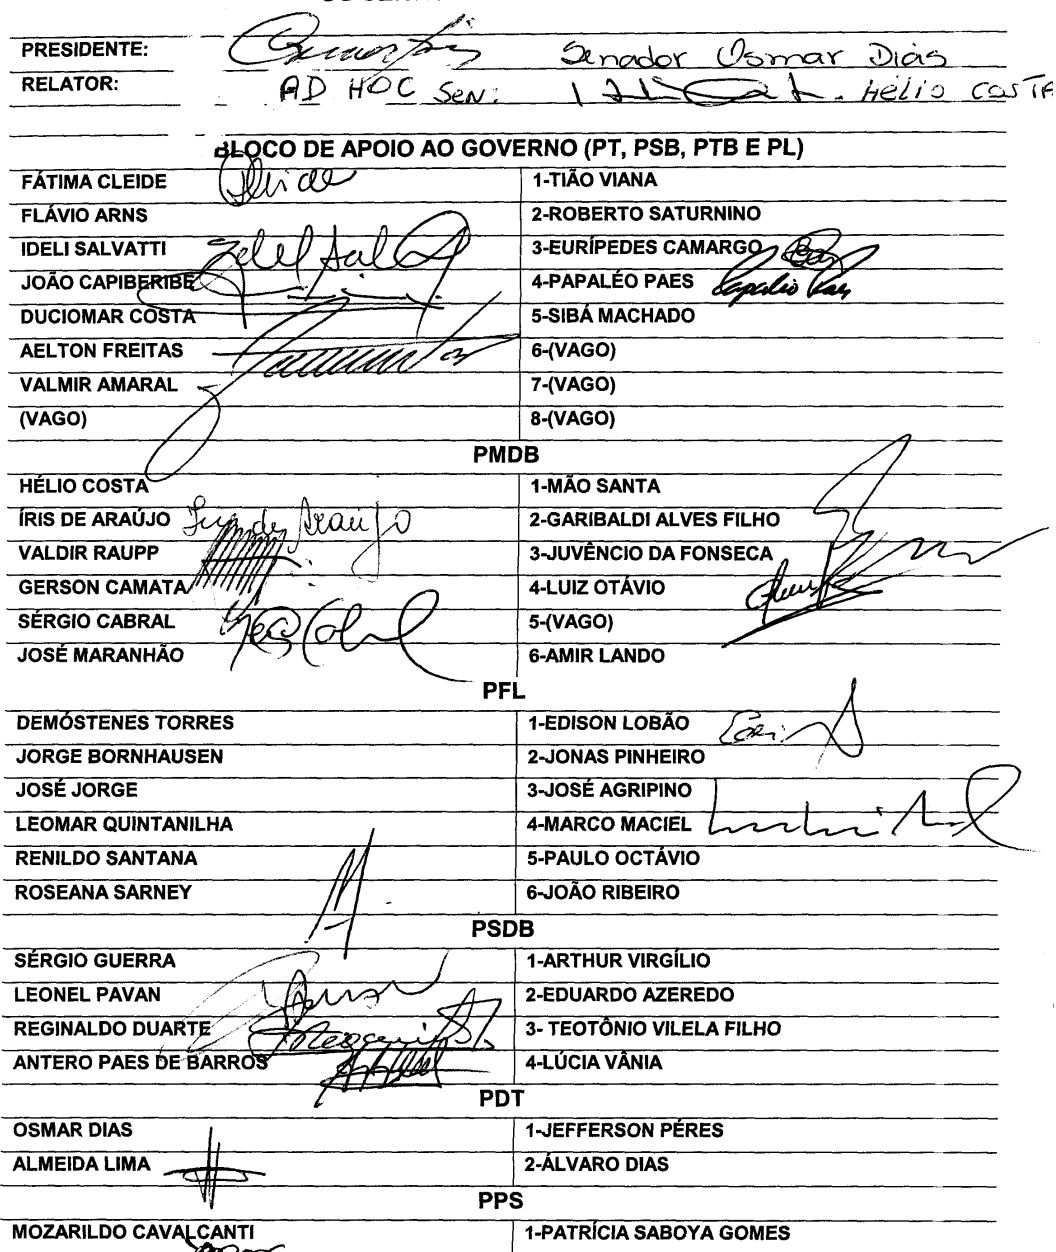 PRESIDENTE: Senador Osmar Dias
RELATOR: AD HOC Sen: Hélio Costa
BLOCO DE APOIO AO GOVERNO (PT, PSB, PTB E PL)
FÁTIMA CLEIDE 1-TIÃO VIANA
FLÁVIO ARNS 2-ROBERTO SATURNINO
IDELI SALVATTI 3-EURÍPEDES CAMARGO
JOÃO CAPIBERIBE 4-PAPALÉO PAES Papaléo Paes
DUCIOMAR COSTA 5-SIBÁ MACHADO
AELTON FREITAS 6-(VAGO)
VALMIR AMARAL 7-(VAGO)
(VAGO) 8-(VAGO)
PMDB
HÉLIO COSTA 1-MÃO SANTA
ÍRIS DE ARAÚJO Iris de Araújo 2-GARIBALDI ALVES FILHO
VALDIR RAUPP 3-JUVÊNCIO DA FONSECA
GERSON CAMATA 4-LUIZ OTÁVIO
SÉRGIO CABRAL 5-(VAGO)
JOSÉ MARANHÃO 6-AMIR LANDO
PFL
DEMÓSTENES TORRES 1-EDISON LOBÃO
JORGE BORNHAUSEN 2-JONAS PINHEIRO
JOSÉ JORGE 3-JOSÉ AGRIPINO
LEOMAR QUINTANILHA 4-MARCO MACIEL
RENILDO SANTANA 5-PAULO OCTÁVIO
ROSEANA SARNEY 6-JOÃO RIBEIRO
PSDB
SÉRGIO GUERRA 1-ARTHUR VIRGÍLIO
LEONEL PAVAN 2-EDUARDO AZEREDO
REGINALDO DUARTE 3- TEOTÔNIO VILELA FILHO
ANTERO PAES DE BARROS 4-LÚCIA VÂNIA
PDT
OSMAR DIAS 1-JEFFERSON PÉRES
ALMEIDA LIMA 2-ÁLVARO DIAS
PPS
MOZARILDO CAVALCANTI 1-PATRÍCIA SABOYA GOMES